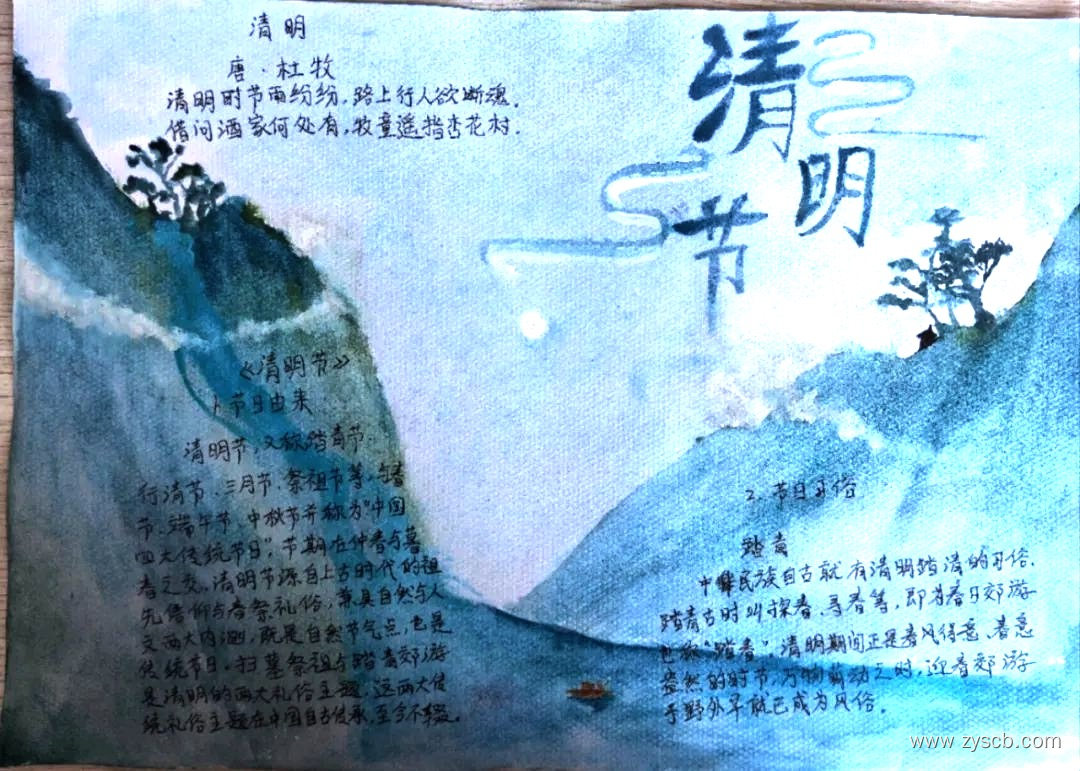 清明
唐·杜牧
清明时节雨纷纷，路上行人欲断魂．
借问酒家何处有，牧童遥指杏花村．
清明节
《清明节》
1、节日由来
清明节，又称踏青节、
行清节、三月节、祭祖节等，与春
节、端午节、中秋节并称为“中国
四大传统节日”，节期在仲春与暮
春之交．清明节源自上古时代的祖
先信仰与春祭礼俗，兼具自然与人
文两大内涵，既是自然节气点，也是
传统节日．扫墓祭祖与踏青郊游
是清明的两大礼俗主题，这两大传
统礼俗主题在中国自古传承，至今不辍．
2．节日习俗
踏青
中华民族自古就有清明踏清的习俗．
踏青古时叫探春、寻春等，即为春日郊游
也称“踏春”，清明期间正是春风得意、春意
盎然的时节，万物萌动之时，迎春郊游
于野外早就已成为风俗．
www.zyscb.com